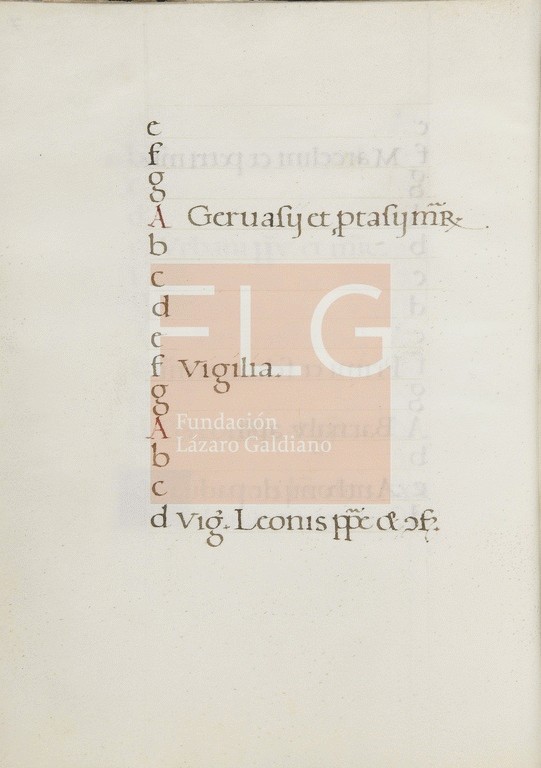 e
f
g
A Geruasij et ꝓtasij mr̃ꝝ.
b
c
d
e
f Vigilia.
g
A
b
c
d Vig̃. Leonis pp̃e & ↄf̃.
FLG
Fundación
Lázaro Galdiano